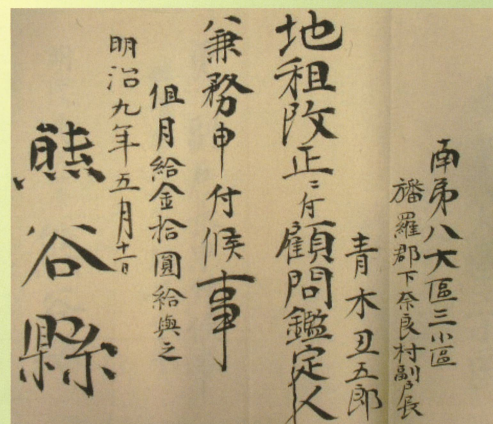 南第八大區三小區
旛羅郡下奈良村副戸長
青木丑五郎
地租改正ニ付顧問鑑定人
兼務申付候事
但月給金拾圓給與之
明治九年五月十二日
熊谷縣